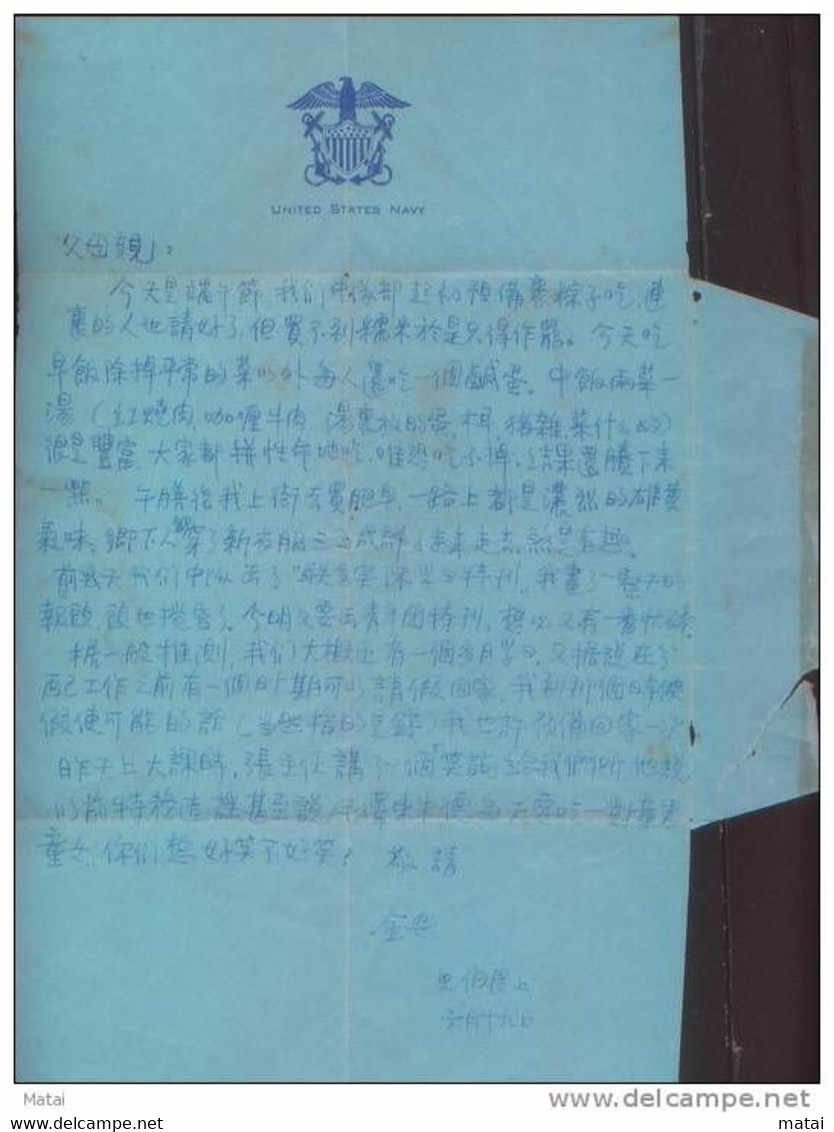 UNITED STATES NAVY
父母親：
今天是端午節，我们中隊部起初預備裹粽子吃，連
裹的人也請好了，但買不到糯米於是只得作罷。今天吃
早飯除掉平常的菜以外每人還吃一個鹹蛋。中飯兩菜一
湯（紅燒肉，咖喱牛肉，湯裏放的蛋，木耳，猪雜，菜什么的）
很是豐富，大家都拼性命地吃，唯恐吃不掉，結果還賸下來
一點。 午膳後我上街去買肥皂，一路上都是濃烈的雄黄
氣味，鄉下人都穿了新衣服三三成群走來走去，煞是有趣。
前幾天我们中队出了 特刊，我畫了一整天的
報頭，頭也 昏了。今明又要出青年团特刊，想必又有一番忙碌。
據一般推測，我们大概还有一個多月学习，又據說在分
配工作之前有一個时期可以請假回家，我到那個时候
假使可能的話（当然指的是錄）我也許預備回家一次
昨天上大課時，張主任講了一個"笑話"給我們听他說
以前特務造謠甚至說，毛澤東朱德每天要吃一對童男
童女，你们想，好笑不好笑！ 敬請
金安
兒伯 上
六月十九日
Matai
delcampe.net
Matai
delcampe.net
matai